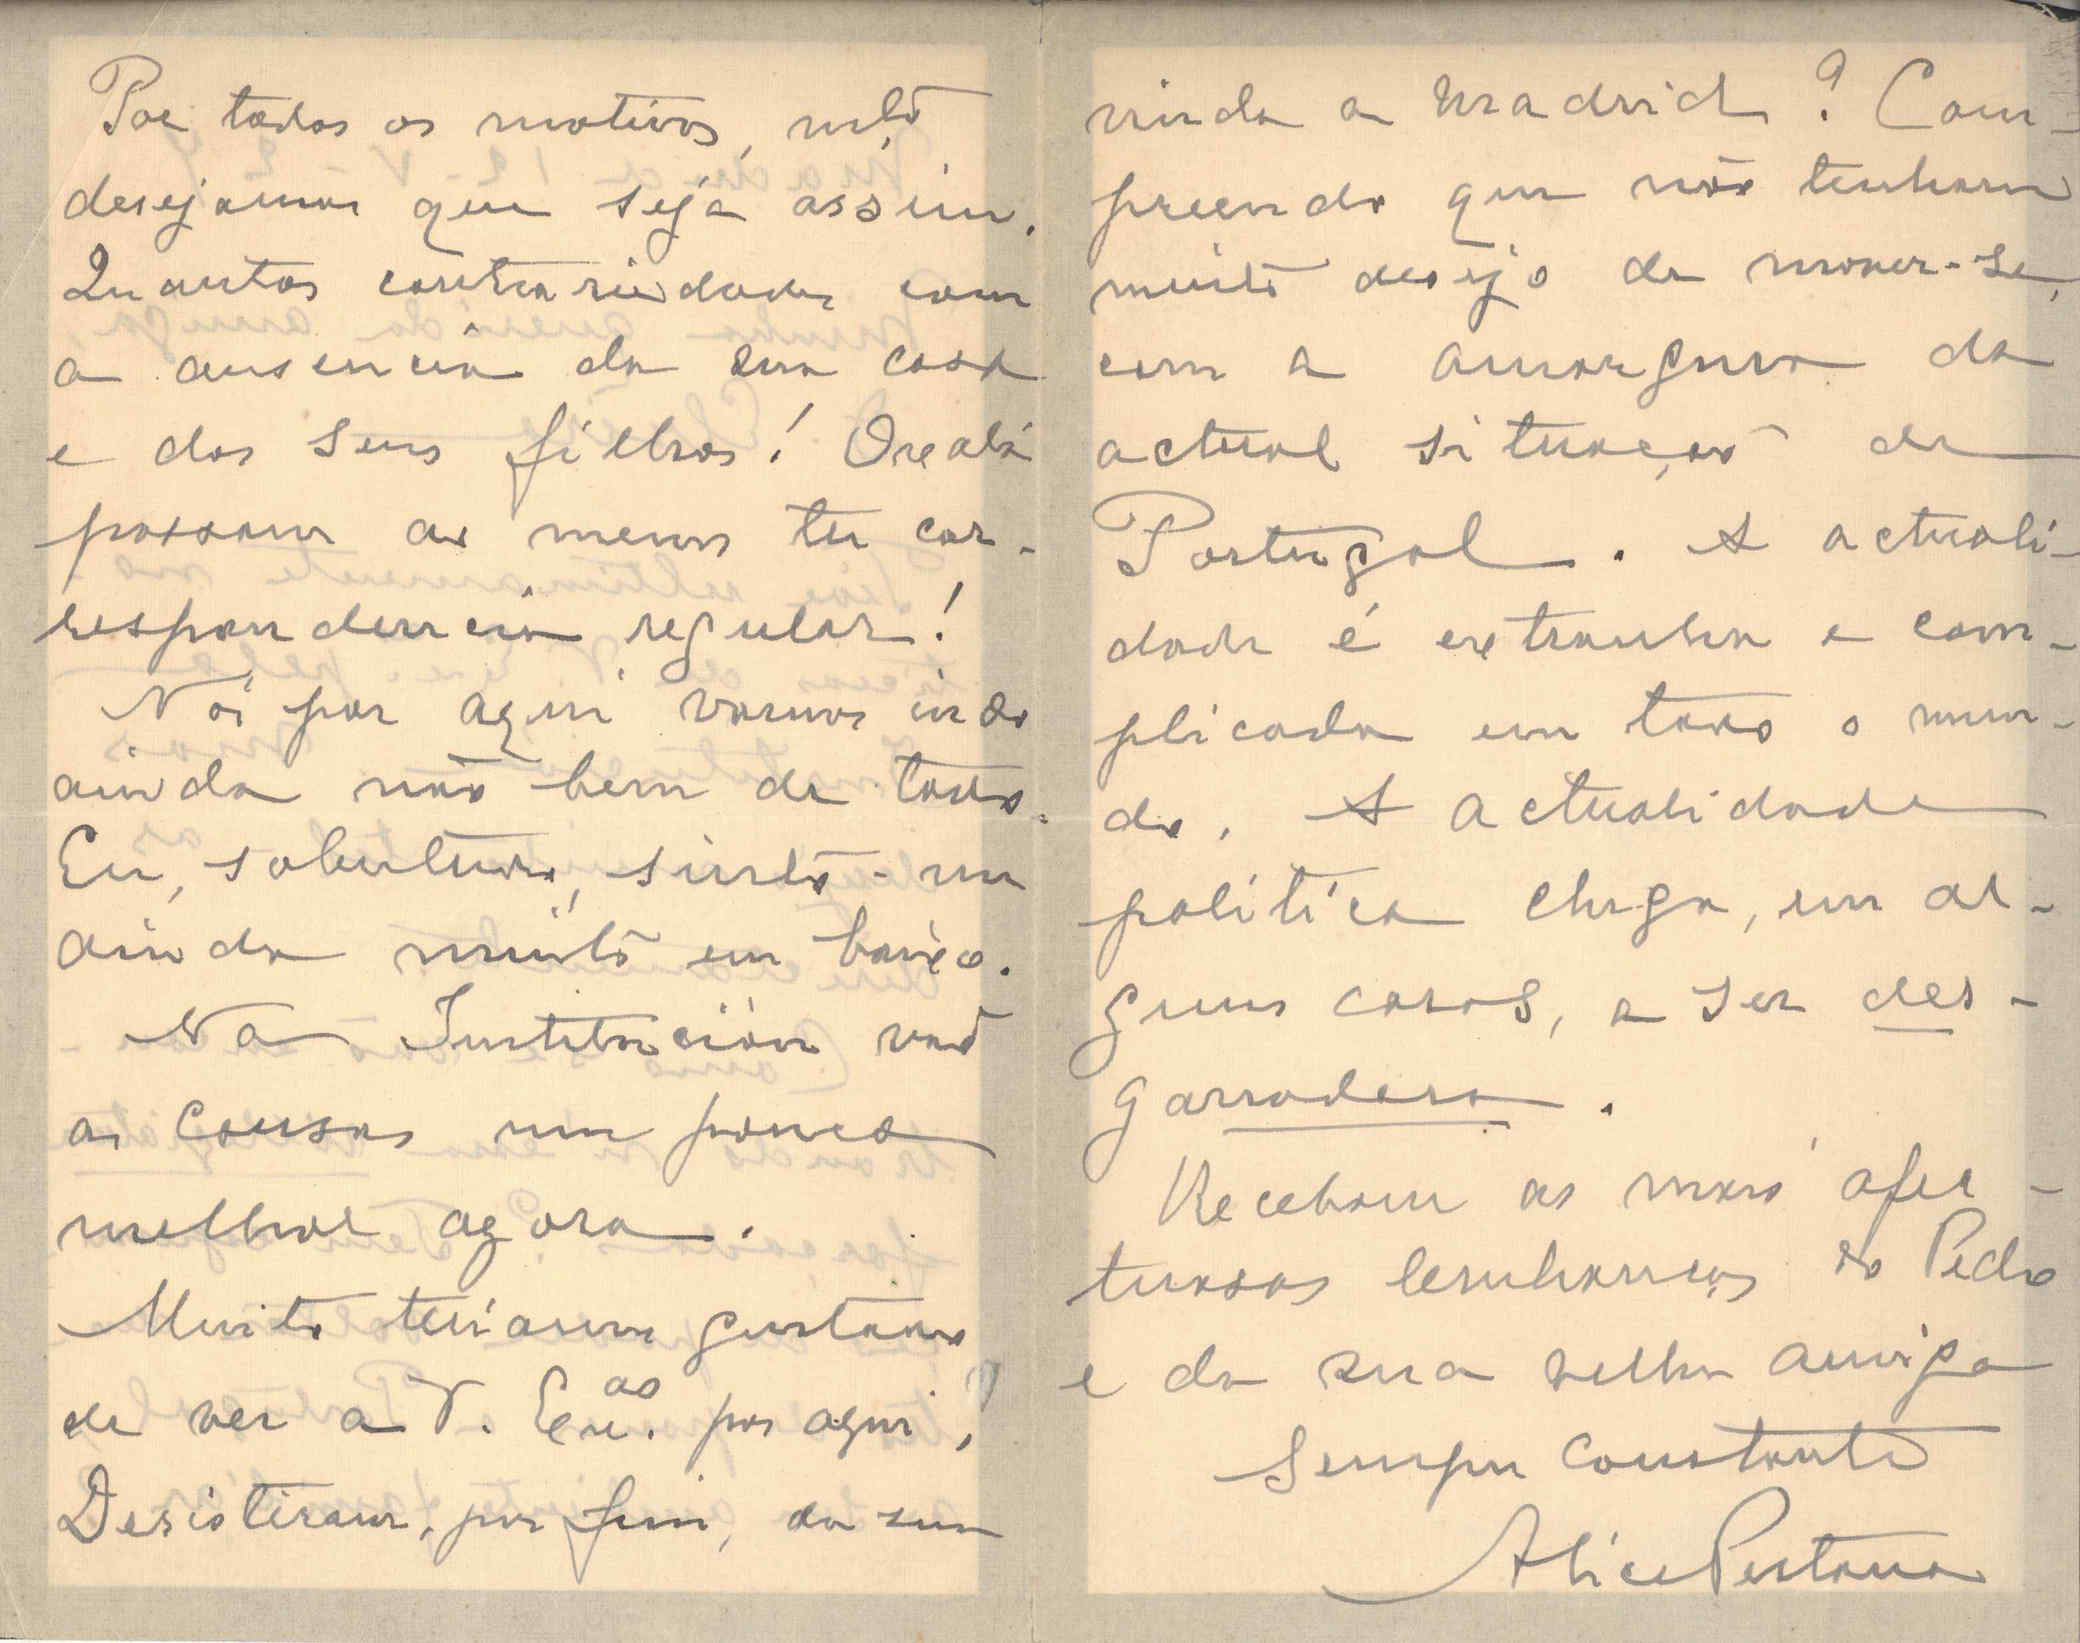 Por todos os motivos, mto
desejamos que seja assim.
Quantas contrariedades com
a ausencia da sua casa
e dos seus filhos! Oxalá
possam ao menos ter cor-
respondencia regular!
Nós por aqui vamos indo
ainda não bem de todo.
Eu, sobretudo, sinto-me
ainda muito em baixo.
Na Institución vão
as cousas um pouco
melhor agora.
Muito teriamos gostado
de ver a V. Exas. por aqui!
Desistiram, por fim, da sua
vinda a Madrid? Com-
preendo que não tenham
muito desejo de mover-se,
com a amargura da
actual situação de
Portugal. A actuali-
dade é extranha e com-
plicada em todo o mun-
do. A actualidade
politica chega, em al-
guns casos, a ser des-
garradera.
Recebam as mais afec-
tuosas lembranças do Pedro
e da sua velha amiga
sempre constante
Alice Pestana